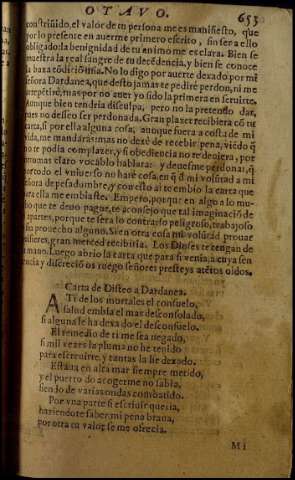 OTAVO. 653
construido, el valor de tu persona me es manifiesto, que
por lo presente en auerme primero escrito, sin ser a ello
obligado: la benignidad de tu animo me es clara. Bien se
muestra la real sangre de tu decendencia, y bien se conoce
la baxa cõdiciõ mia. No lo digo por auerte dexado por mi
señora Dardanea, que desto jamas te pedirè perdon, ni me
arrepẽtirè, mas por no auer yo sido la primera en seruirte.
Aunque bien tendria disculpa, pero no la pretendo dar,
pues no desseo ser perdonada. Gran plazer recibiera cõ tu
carta, si por ella alguna cosa, aunque fuera a costa de mi
vida, me mandâras: mas no dexè de recebir pena, viẽdo q̃
no te podia complazer, y si obediencia no te deuiera, por
mas claro vocablo hablara: y deuesme perdonar, q̃
por todo el vniuerso no harè cosa, en q̃ dè mi volũtad a mi
señora de pesadumbre, y con esto ai te embio la carta que
ella me embiaste. Empero, porque en algo a lo mu-
cho que te deuo pague, te aconsejo que tal imaginaciõ de
partes, porque te serà lo contrario peligroso, trabajoso
sin prouecho alguno. Si en otra cosa mi volũtad prouar
quisieres, gran merced recibiria. Los Dioses te tengan de
mano. Luego abrio la carta que para si venia, a cuya sen-
tencia y discreciõ os ruego señores presteys atẽtos oidos.
Carta de Disteo a Dardanea.
A Ti de los mortales el consuelo,
salud embia el mas desconsolado,
si alguna le ha dexado el desconsuelo.
El remedio de ti me sea negado,
si mil vezes la pluma no he tenido
para escreuirte, y tantas la he dexado.
Estaua en alta mar siempre metido,
y el puerto do acogerme no sabia,
siendo de varias ondas combatido.
Por vna parte si escriuir queria,
haziendote saber mi pena braua,
por otra tu valor se me ofrecia.
Mi